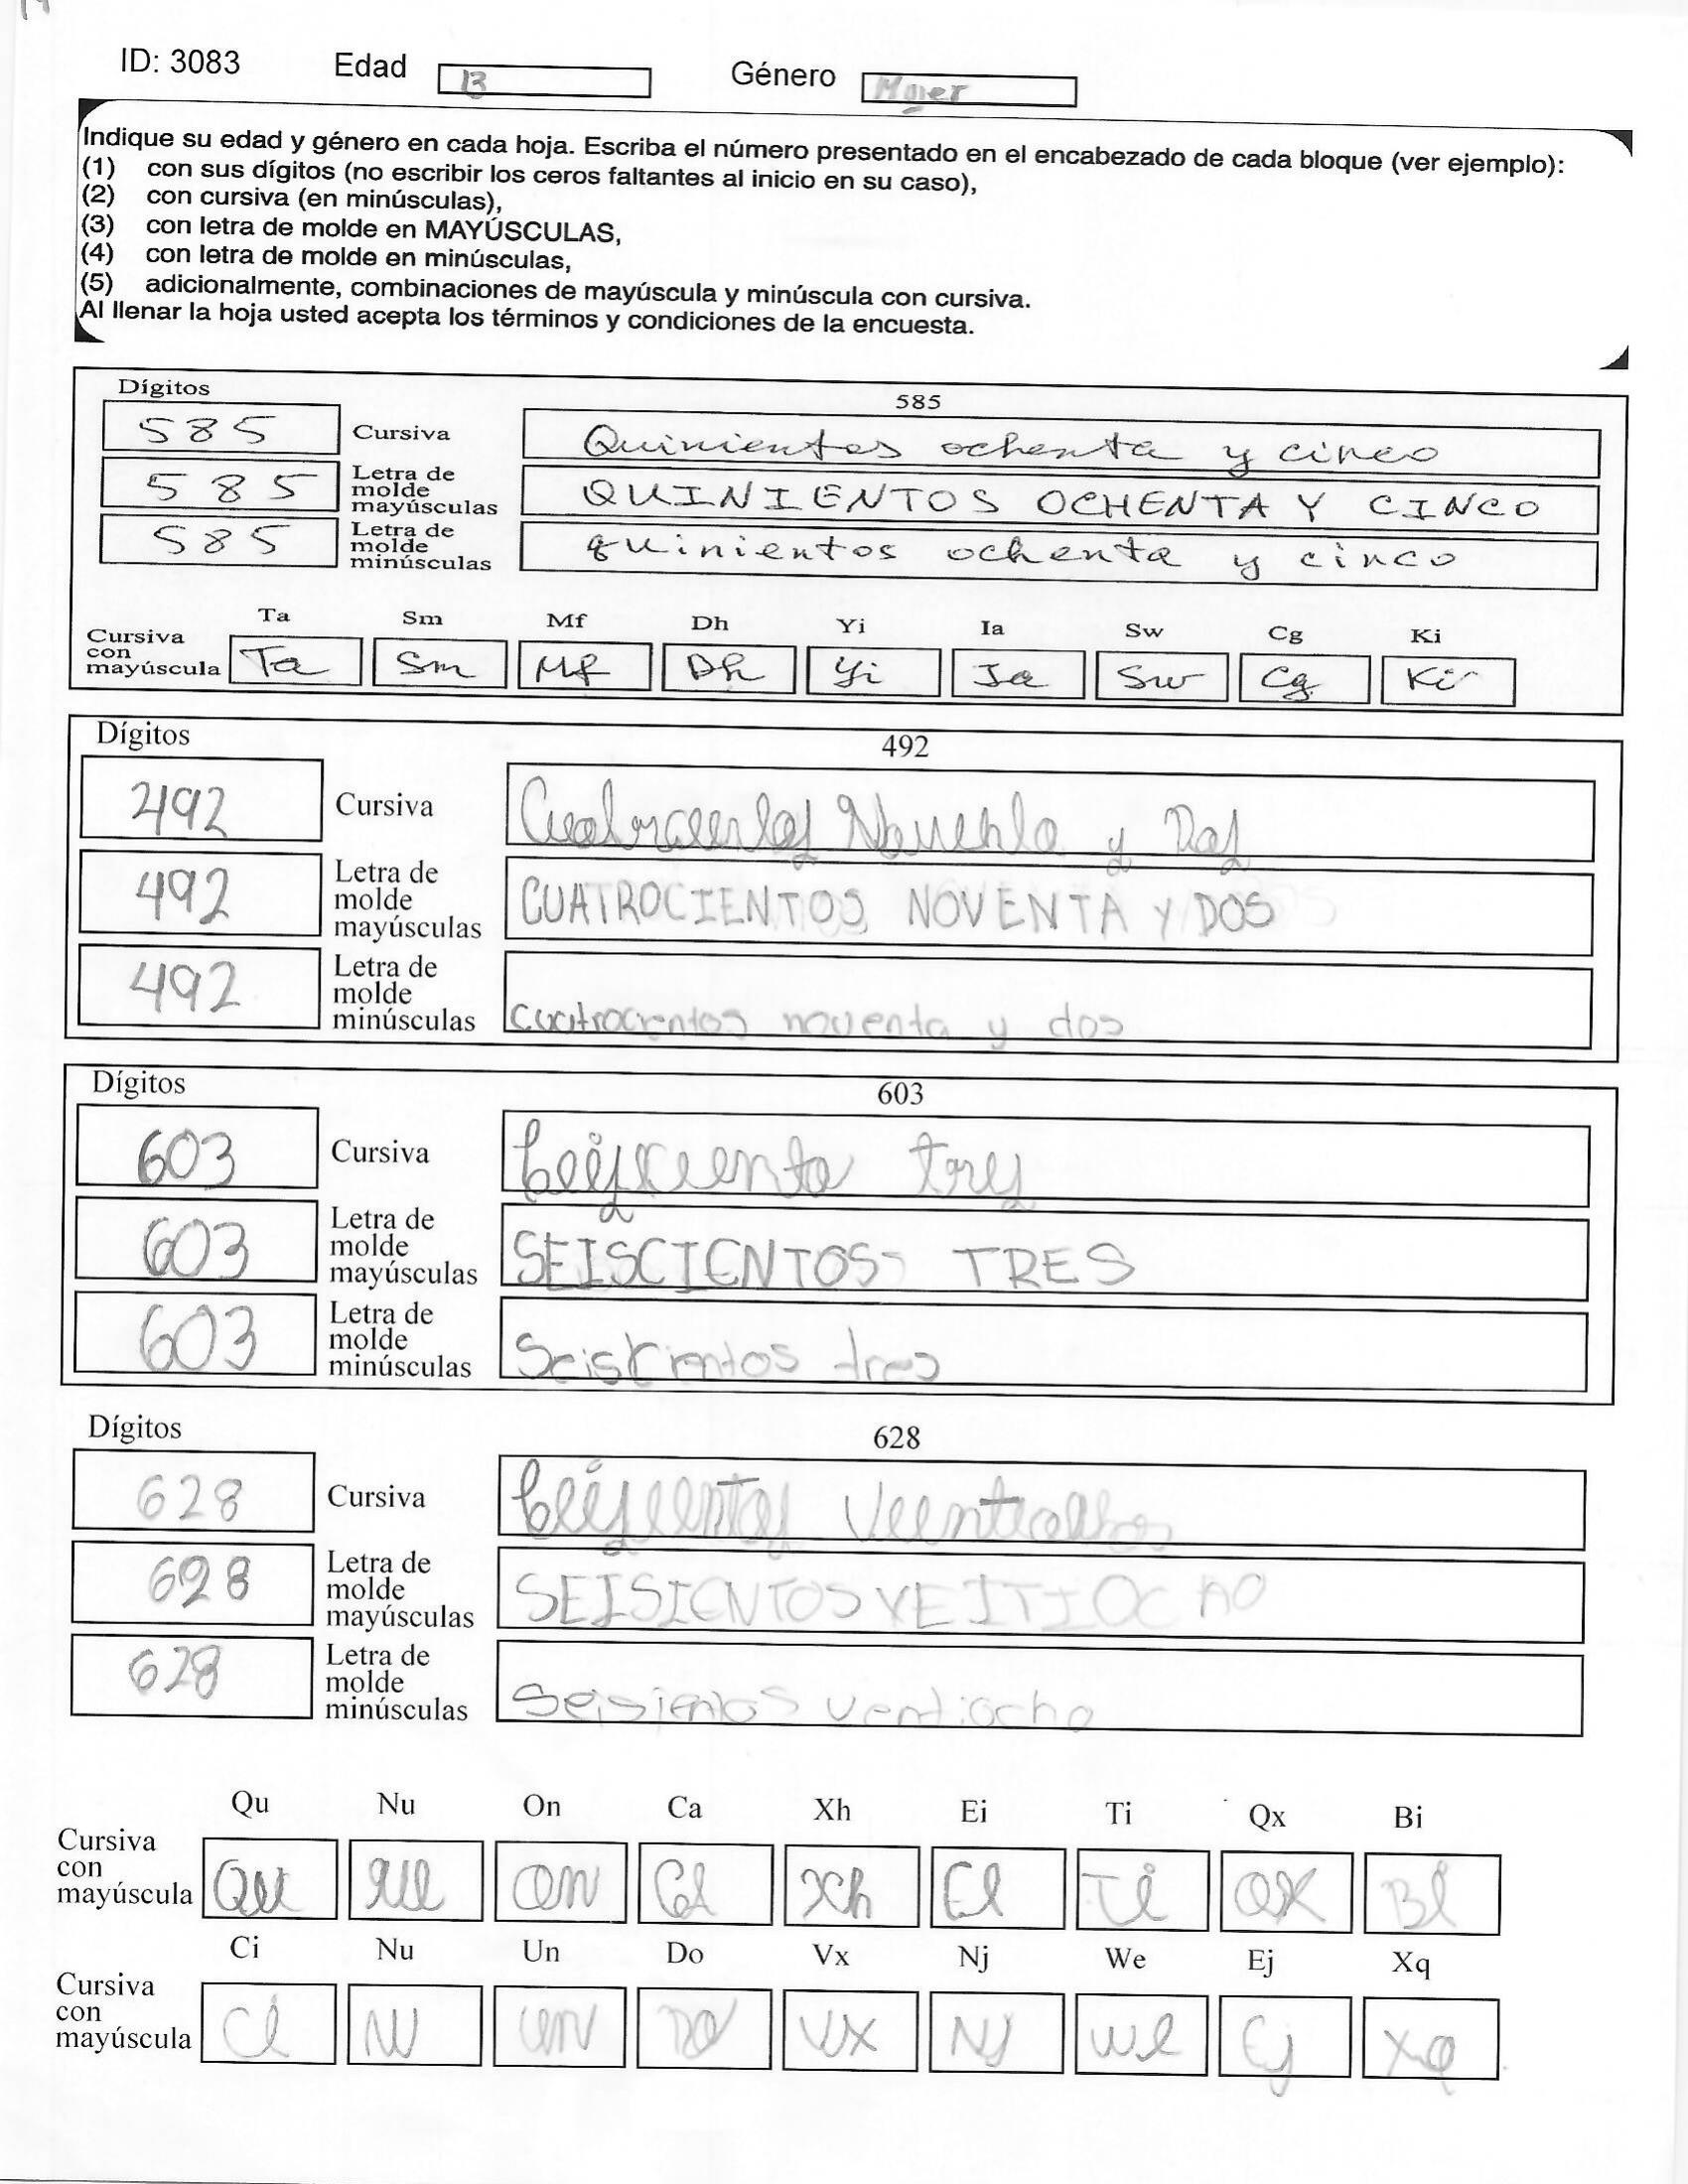 ID: 3083 Edad 13 Género Mujer
Indique su edad y género en cada hoja. Escriba el número presentado en el encabezado de cada bloque (ver ejemplo):
(1) con sus dígitos (no escribir los ceros faltantes al inicio en su caso),
(2) con cursiva (en minúsculas),
(3) con letra de molde en MAYÚSCULAS,
(4) con letra de molde en minúsculas,
(5) adicionalmente, combinaciones de mayúscula y minúscula con cursiva.
Al llenar la hoja usted acepta los términos y condiciones de la encuesta.
Dígitos 585
585 Cursiva Quinientos ochenta y cinco
585 Letra de molde mayúsculas QUINIENTOS OCHENTA Y CINCO
585 Letra de molde minúsculas quinientos ochenta y cinco
Ta Sm Mf Dh Yi Ia Sw Cg Ki
Cursiva con mayúscula Ta Sm Mf Dh Yi Ia Sw Cg Ki
Dígitos 492
492 Cursiva Cuatrocientos y Dos
492 Letra de molde mayúsculas CUATROCIENTOS NOVENTA Y DOS
492 Letra de molde minúsculas cuatrocientos noventa y dos
Dígitos 603
603 Cursiva tres
603 Letra de molde mayúsculas SEISCIENTOS TRES
603 Letra de molde minúsculas tres
Dígitos 628
628 Cursiva
628 Letra de molde mayúsculas SEISIENTOS VEITIOCHO
628 Letra de molde minúsculas seisientos ventiocho
Qu Nu On Ca Xh Ei Ti Qx Bi
Cursiva con mayúscula Qu Nu On Ca Xh Ei Ti Qx Bi
Ci Nu Un Do Vx Nj We Ej Xq
Cursiva con mayúscula Ci Nu Un Do Vx Nj We Ej Xq